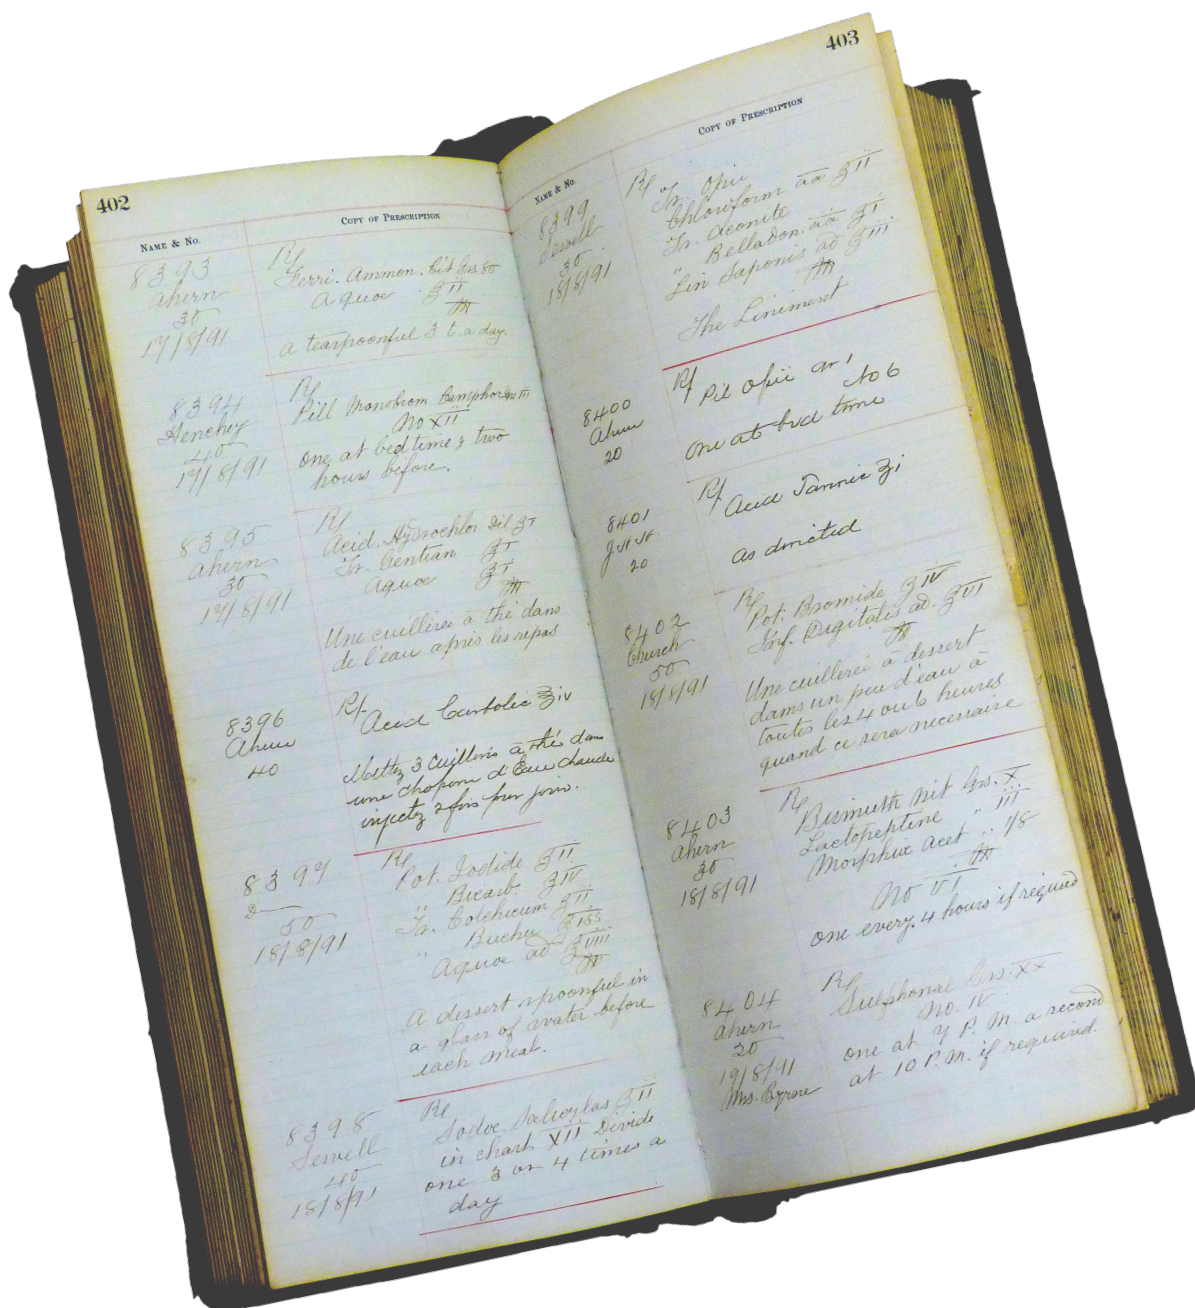 402
NAME & NO.
COPY OF PRESCRIPTION
8393
Ahern
30
17/8/91
Rx
Ferri. Ammon. Cit Grs 80
Aquae ℥ II
M
A teaspoonful 3 t. a day.
8394
Henchey
40
17/8/91
Rx
Pill Monobrom Camphor Grs III
No XII
One at bedtime & two
hours before.
8395
Ahern
30
17/8/91
Rx
Acid. Hydrochlor Dil ʒ I
Tr. Gentian ℥ I
Aquae ℥ I
M
Une cuillerée à thé dans
de l'eau après les repas
8396
Ahern
40
Rx
Acid Carbolic ℥ iv
Mettez 3 cuillerés à thé dans
une chopine d'Eau chaude
injectez 2 fois par jour.
8397
D——
50
18/8/91
Rx
Pot. Iodide ʒ II
" Bicarb ʒ IV
Tr. Colchicum ʒ II
" Buchu ℥ ISS
Aquae ad ℥ VIII
M
A dessert spoonful in
a glass of water before
each meal.
8398
Sewell
40
18/8/91
Rx
Sodae Salicylas ʒ II
in chart XII Divide
one 3 or 4 times a
day
403
NAME & NO.
COPY OF PRESCRIPTION
8399
Sewell
30
18/8/91
Rx
Tr. Opii
Chloroform aa ʒ II
Tr. Aconite
" Belladon aa ℥ I
Lin Saponis ad ℥ III
M
The Liniment
8400
Ahern
20
Rx
Pil Opii gr 1
No 6
One at bed time
8401
20
Rx
Acid Tannic ʒ i
As directed
8402
Church
50
18/8/91
Rx
Pot. Bromide ʒ IV
Inf. Digitalis ad. ℥ VI
M
Une cuillerée à dessert
dans un peu d'eau à
toutes les 4 ou 6 heures
quand ce sera necessaire
8403
Ahern
30
18/8/91
Rx
Bismuth Nit Grs. X
Lactopeptine " III
Morphiae Acet " 1/8
M
No VI
One every 4 hours if required
8404
Ahern
20
19/8/91
Mrs. Byrne
Rx
Sulphonal Grs. XX
No. IV
One at 7 P.M. a second
at 10 P.M. if required.